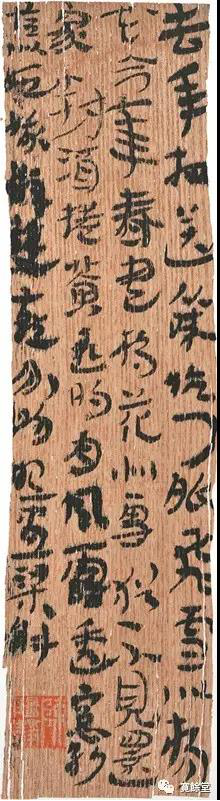 去年相送餘杭門外飛雪似楊
花今年春盡楊花似雪猶不見還
家對酒捲簾邀明月風露透窗紗
恰似姮娥憐雙燕分明照畫梁斜
寬餘堂